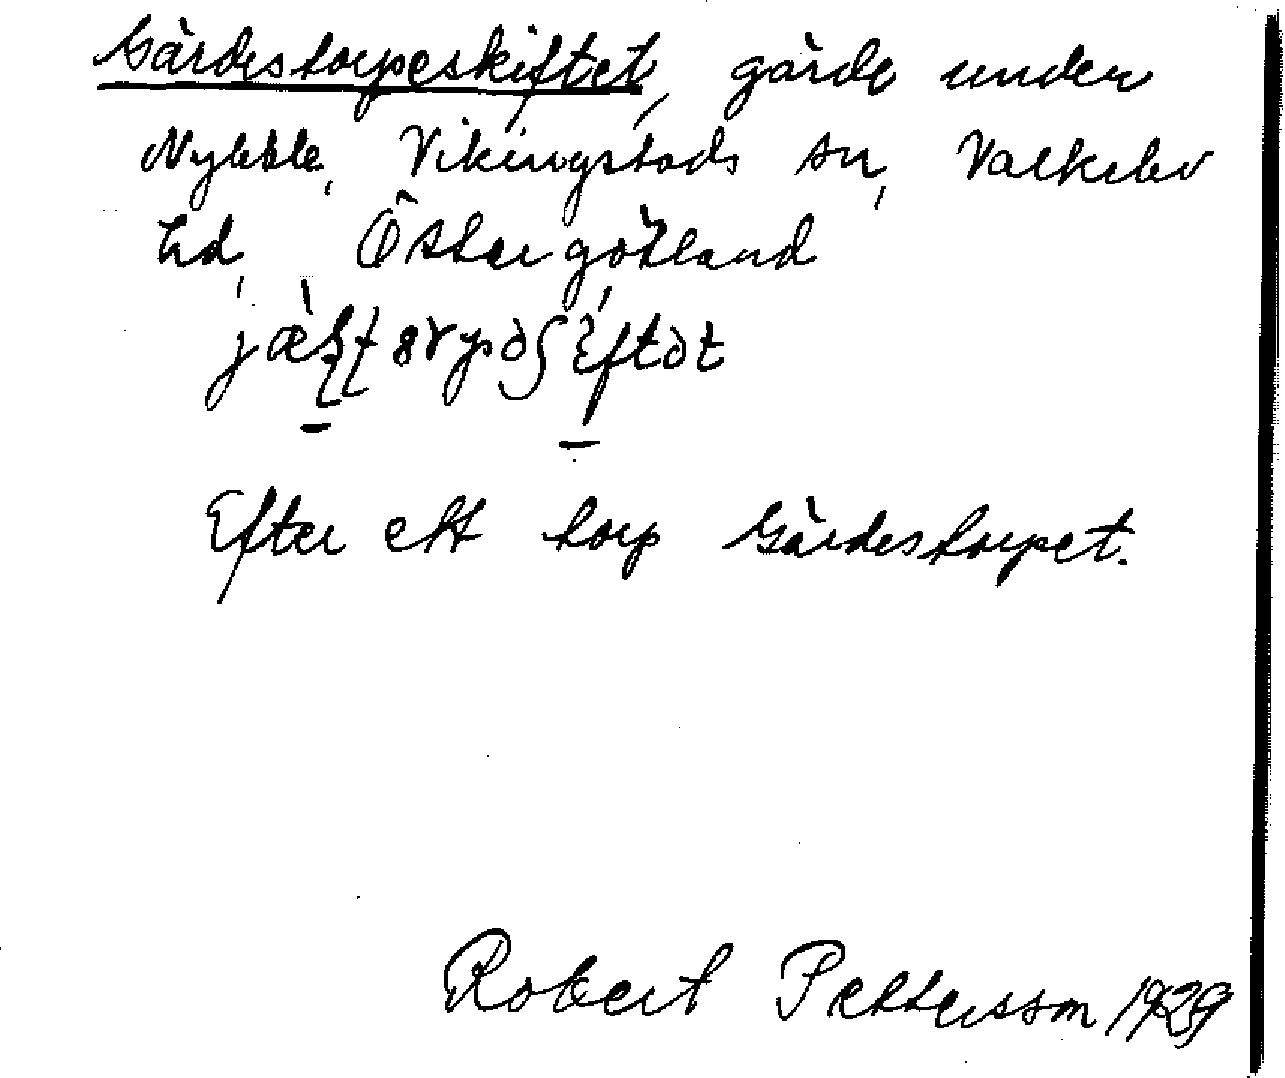 Gärdestorpeskiftet, gärde under
Nybble, Vikingstads sn, Valkebo
hd, Östergötland
Efter ett torp Gärdestorpet.
Robert Pettersson 1929